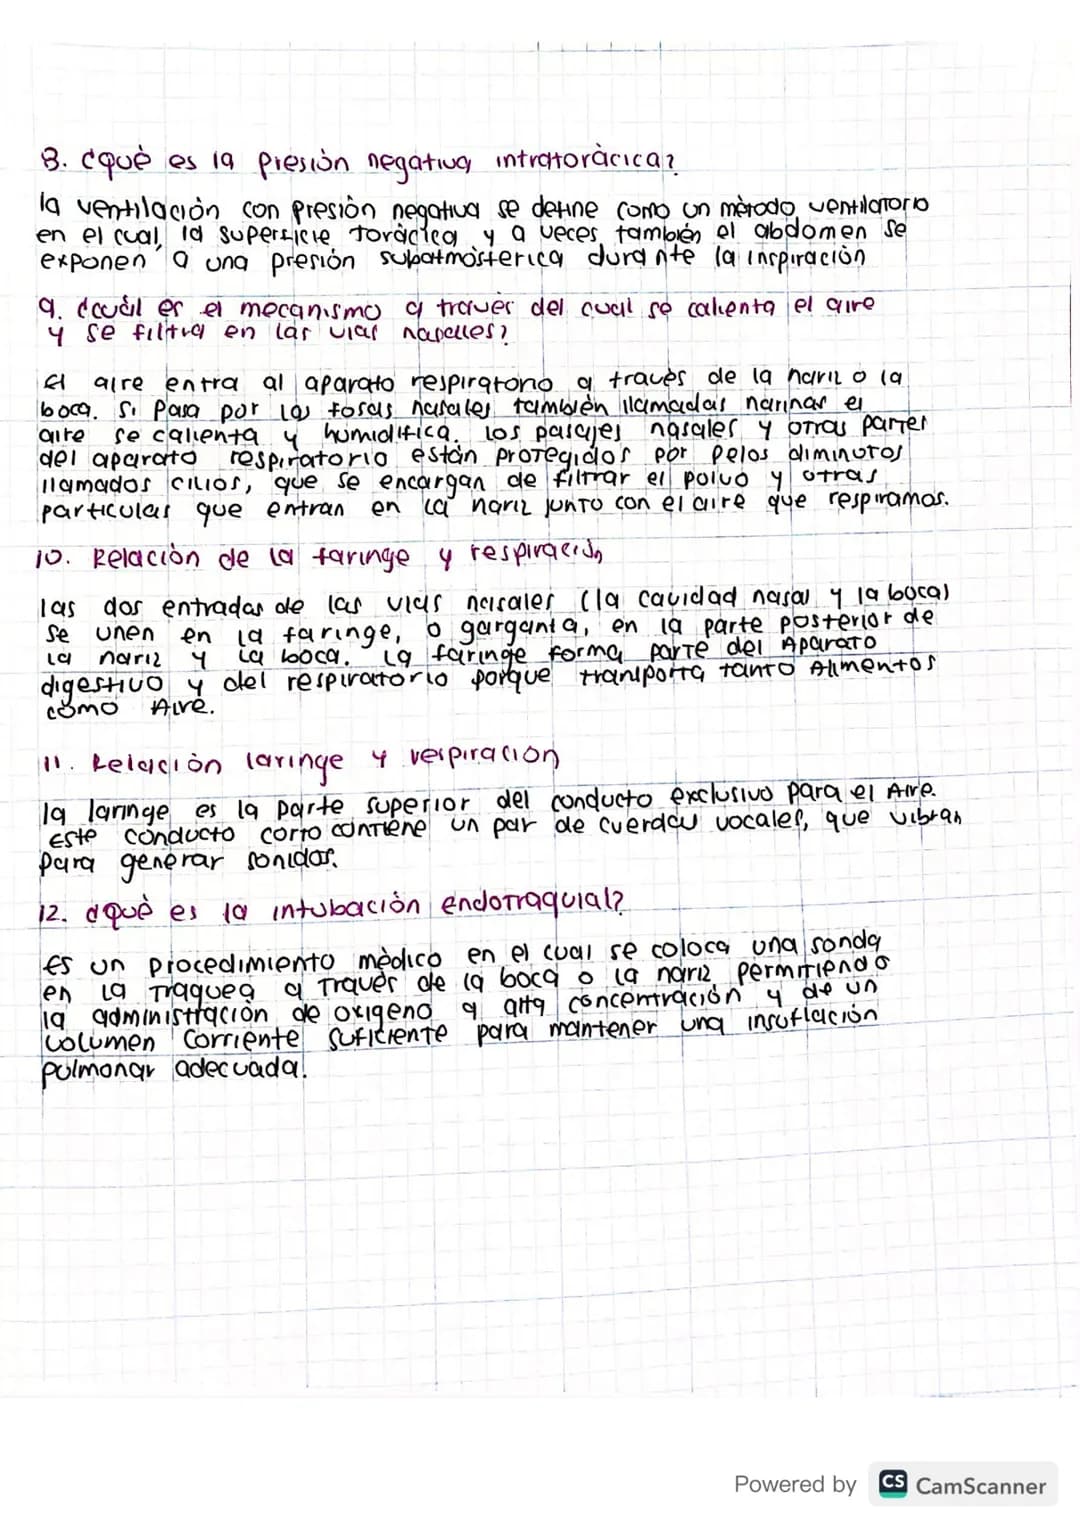 8. ¿què es la presiòn negativa intratoràcica?
la ventilaciòn con presiòn negativa se define como un mètodo ventilatorio
en el cual, la superficie toràcica y a veces tambièn el abdomen se
exponen a una presiòn subatmòsferica durante la inspiraciòn
9. ¿cuàl es el mecanismo a traves del cual se calienta el aire
y se filtra en las vias nasales?
El aire entra al aparato respiratorio a travès de la nariz o la
boca. Si pasa por las fosas nasales tambièn llamadas narinas el
aire se calienta y humidifica. Los pasajes nasales y otras partes
del aparato respiratorio estàn protegidos por pelos diminutos
llamados cilios, que se encargan de filtrar el polvo y otras
particulas que entran en la nariz junto con el aire que respiramos.
10. Relaciòn de la faringe y respiraciòn
las dos entradas de las vias nasales (la cavidad nasal y la boca)
se unen en la faringe, o garganta, en la parte posterior de
la nariz y la boca. La faringe forma parte del Aparato
digestivo y del respiratorio porque transporta tanto Alimentos
como Aire.
11. Relaciòn laringe y respiracion
la laringe es la parte superior del conducto exclusivo para el Aire.
Este conducto corto contiene un par de cuerdas vocales, que vibran
para generar sonidos.
12. ¿què es la intubaciòn endotraquial?
Es un procedimiento mèdico en el cual se coloca una sonda
en la traquea a travès de la boca o la nariz permitiendo
la administraciòn de oxigeno a alta concentraciòn y de un
volumen corriente suficiente para mantener una insuflaciòn
pulmonar adecuada.
Powered by CS CamScanner